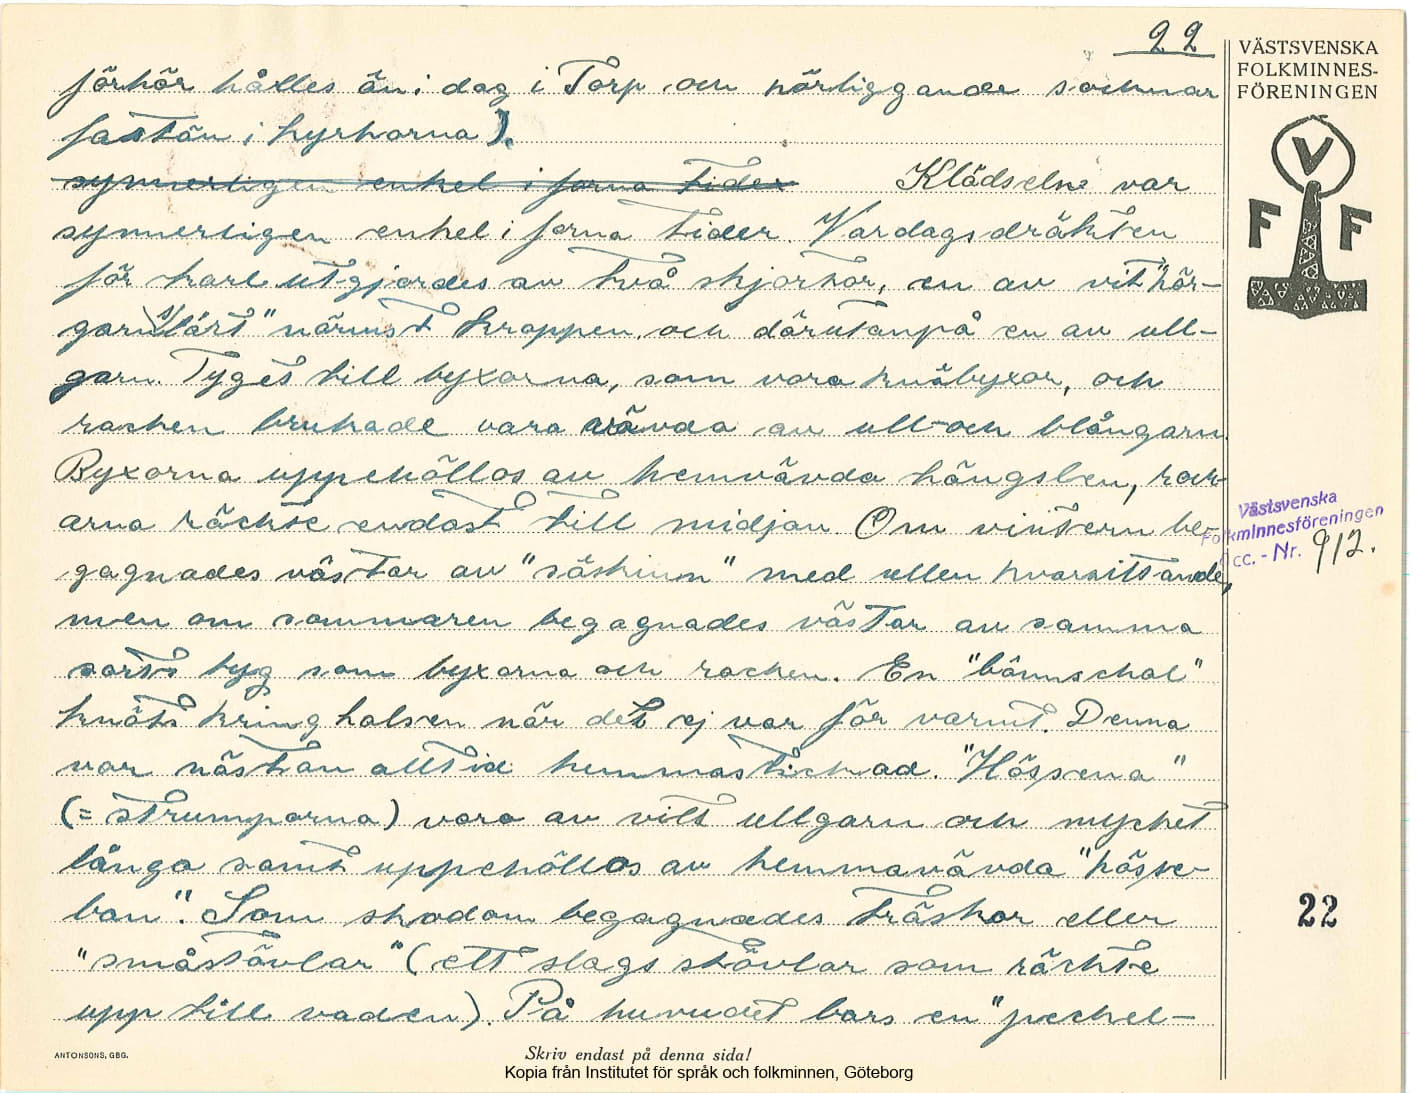 22
VÄSTSVENSKA
FOLKMINNES-
FÖRENINGEN
förhör hålles än i dag i Torp och närliggande socknar
fastän i kyrkorna).
synnerligen enkel i forna tider Klädseln var
synnerligen enkel i forna tider. Vardagsdräkten
för karl utgjordes av två skjortor, en av vit "hör-
garnslärt" närmst kroppen och därutanpå en av ull-
garn. Tyget till byxorna, som vora knäbyxor, och
rocken brukade vara vävda av ull- och blångarn.
Byxorna uppehöllos av hemvävda hängslen, rock-
arna räckte endast till midjan. Om vintern be-
gagnades västar av "såskinn" med ullen kvarsittande,
men om sommaren begagnades västar av samma
sorts tyg som byxorna och rocken. En "bômschal"
knöts kring halsen när det ej var för varmt. Denna
var nästan alltid hemmastickad. "Hössena"
(= strumporna) voro av vitt ullgarn och mycket
långa samt uppehöllos av hemmavävda "hösse-
ban". Som skodon begagnades träskor eller
"småstövlar" (ett slags stövlar som räckte
upp till vaden). På huvudet bars en "peckel-
V
F F
Västsvenska
Folkminnesföreningen
Acc. - Nr. 912.
22
ANTONSONS, GBG.
Skriv endast på denna sida!
Kopia från Institutet för språk och folkminnen, Göteborg